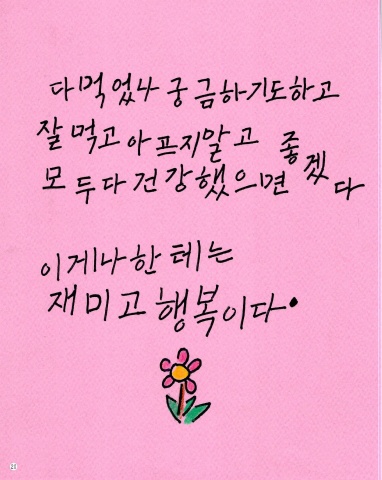 다먹었나 궁금하기도하고
잘먹고 아프지말고 좋겠다
모두다건강했으면
이게나한테는
재미고 행복이다.